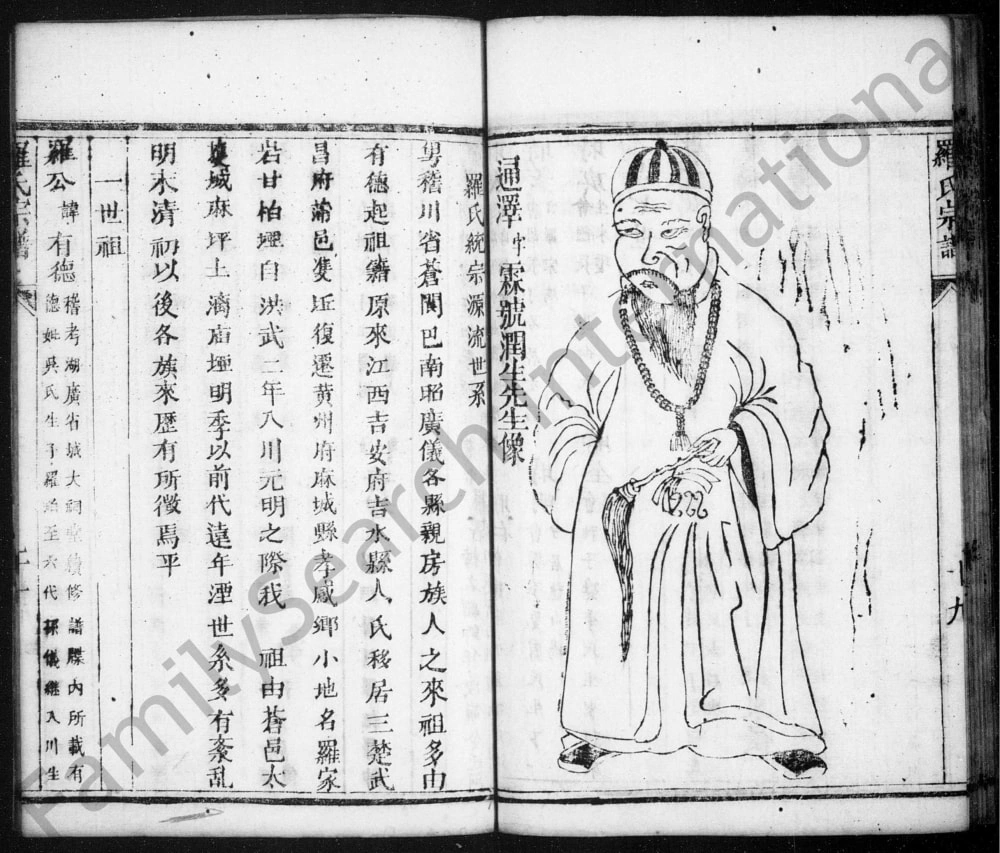 羅氏宗譜
十九
通澤 字霖號潤生先生像
羅氏統宗源流世系
粤稽川省蒼閬巴南昭廣儀各縣親房族人之來祖多由
有德起祖籍原來江西吉安府吉水縣人氏移居三楚武
昌府蒲邑雙坵復遷黃州府麻城縣孝感鄉小地名羅家
岩甘柏埡自洪武二年入川元明之際我 祖由蒼邑太
城麻坪土濟庙埡明季以前代遠年湮世系多有紊乱
明末清初以後各族來歷有所徵焉乎
一世祖
羅公諱有德 稽考湖廣省城大祠堂續修譜牒內所載有
德姓吳氏生子羅 至六代孫儀經入川生
羅氏宗譜
FamilySearch International